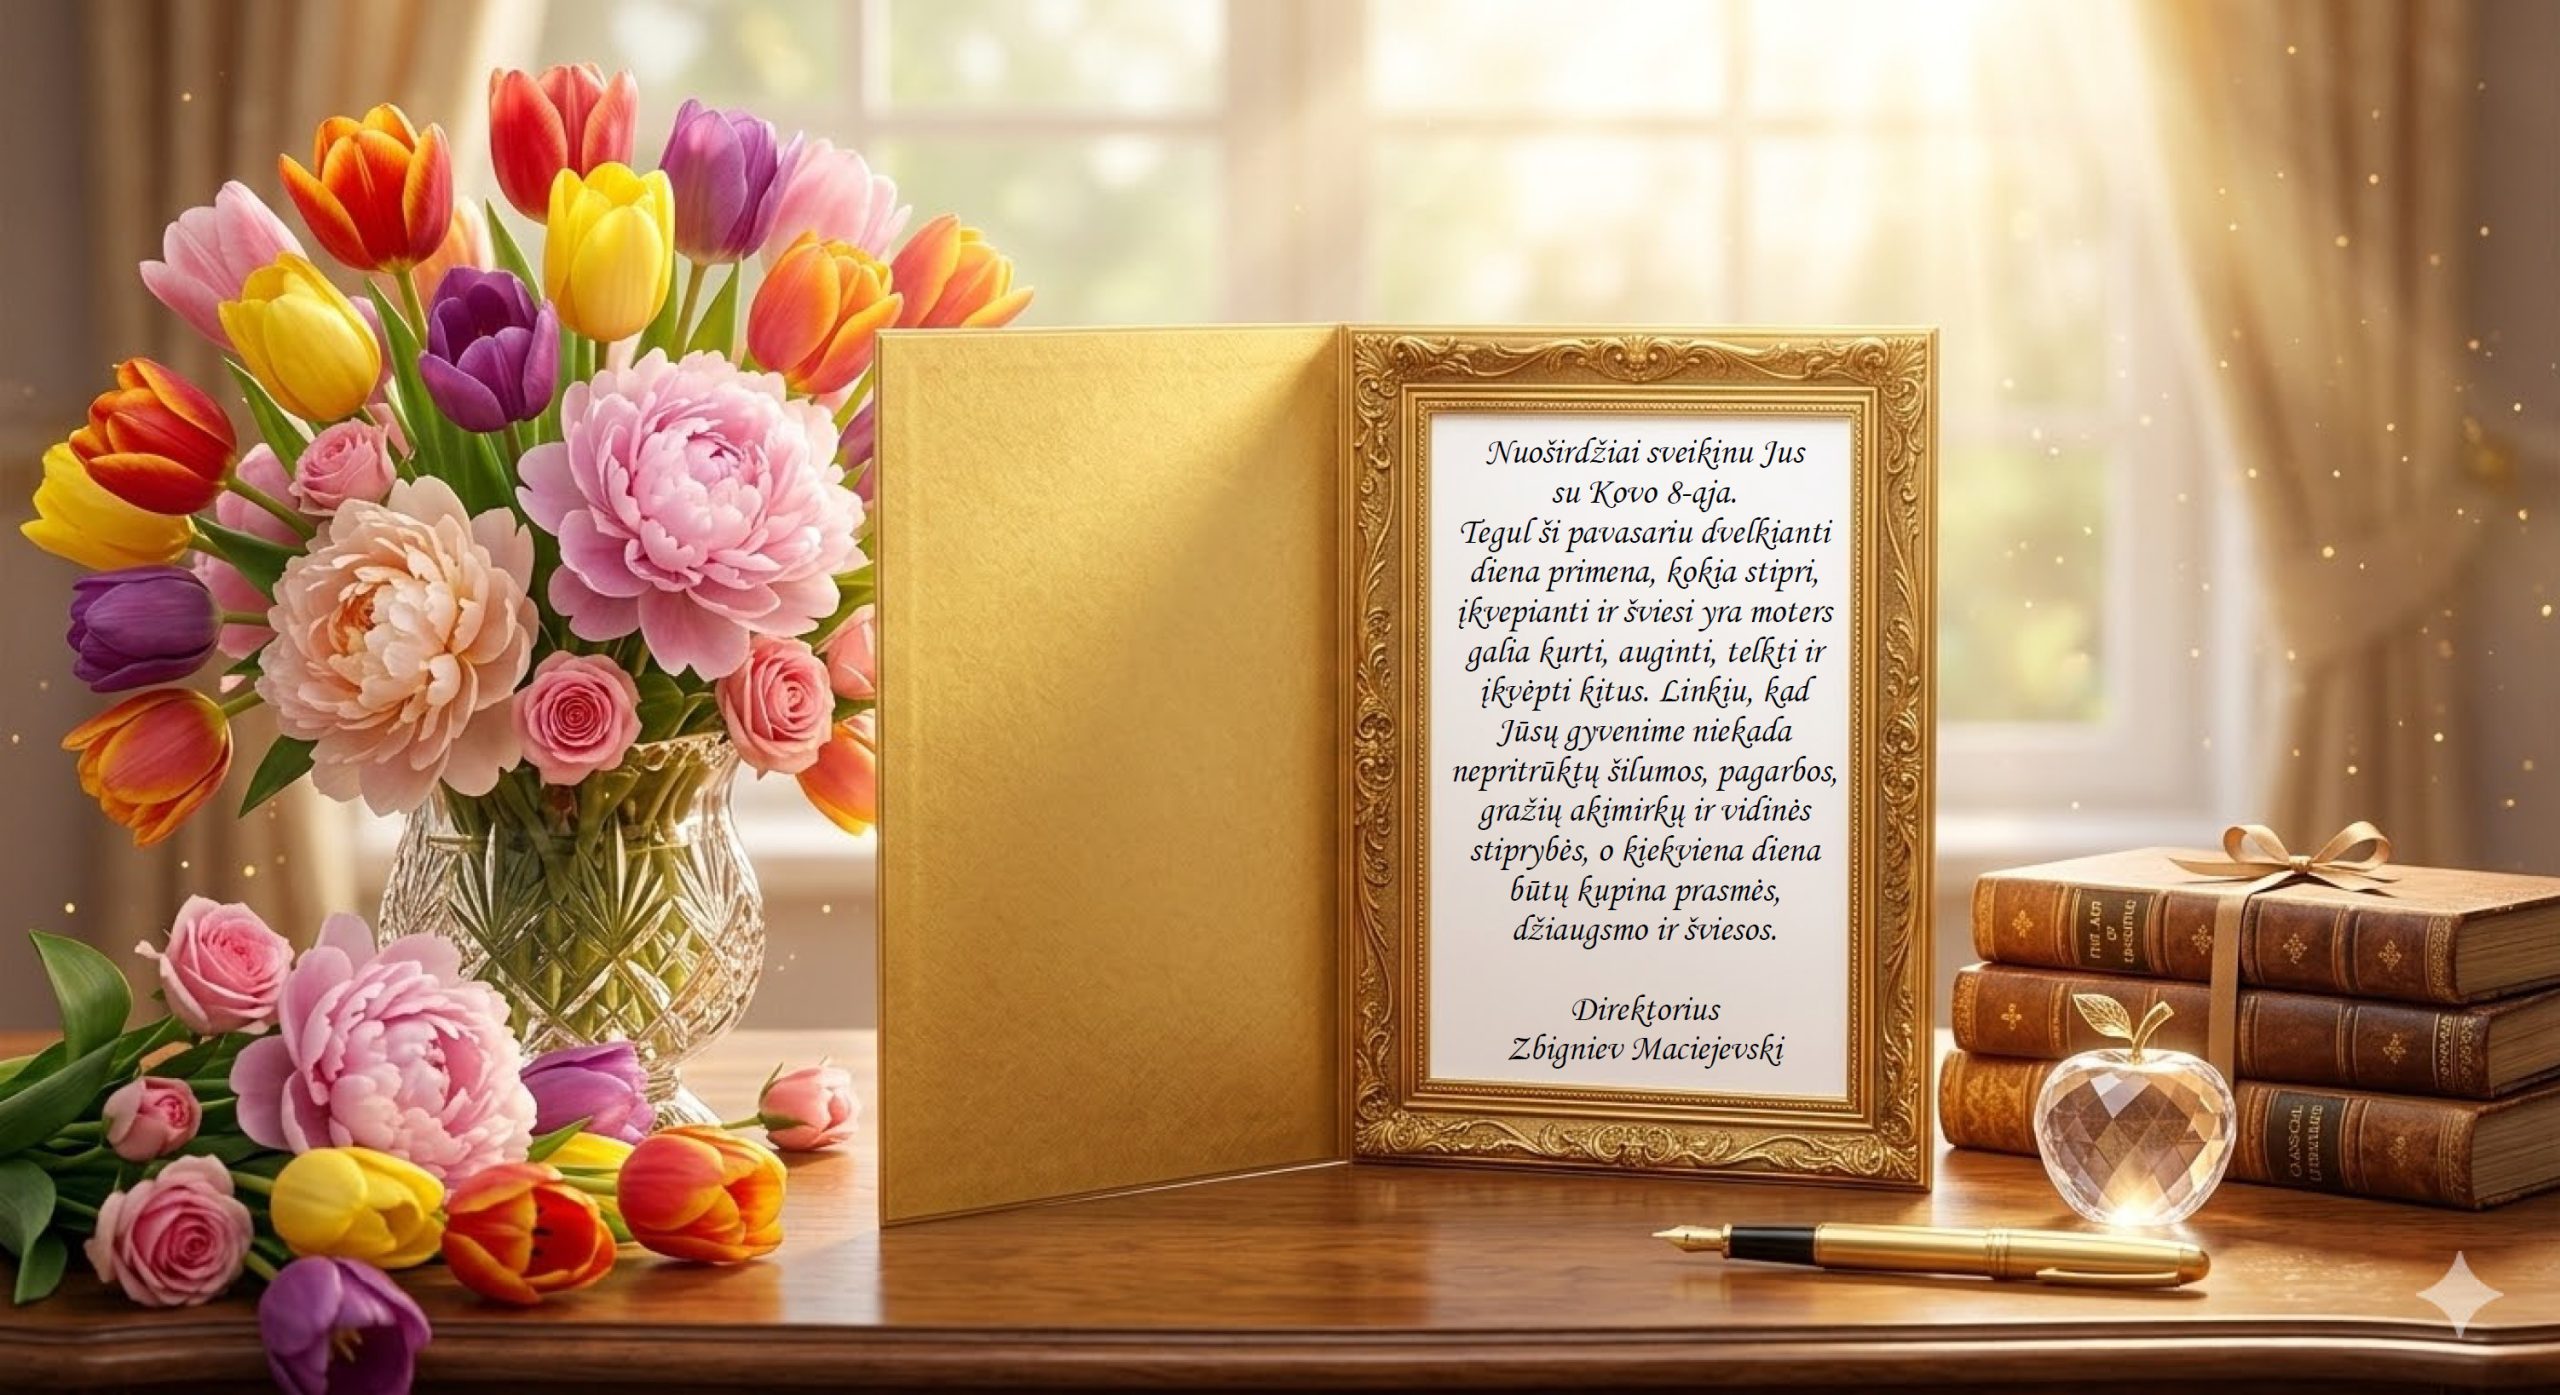 Nuoširdžiai sveikinu Jus
su Kovo 8-ąja.
Tegul ši pavasariu dvelkianti
diena primena, kokia stipri,
įkvepianti ir šviesi yra moters
galia kurti, auginti, telkti ir
įkvėpti kitus. Linkiu, kad
Jūsų gyvenime niekada
nepritrūktų šilumos, pagarbos,
gražių akimirkų ir vidinės
stiprybės, o kiekviena diena
būtų kupina prasmės,
džiaugsmo ir šviesos.
Direktorius
Zbigniev Maciejevskį